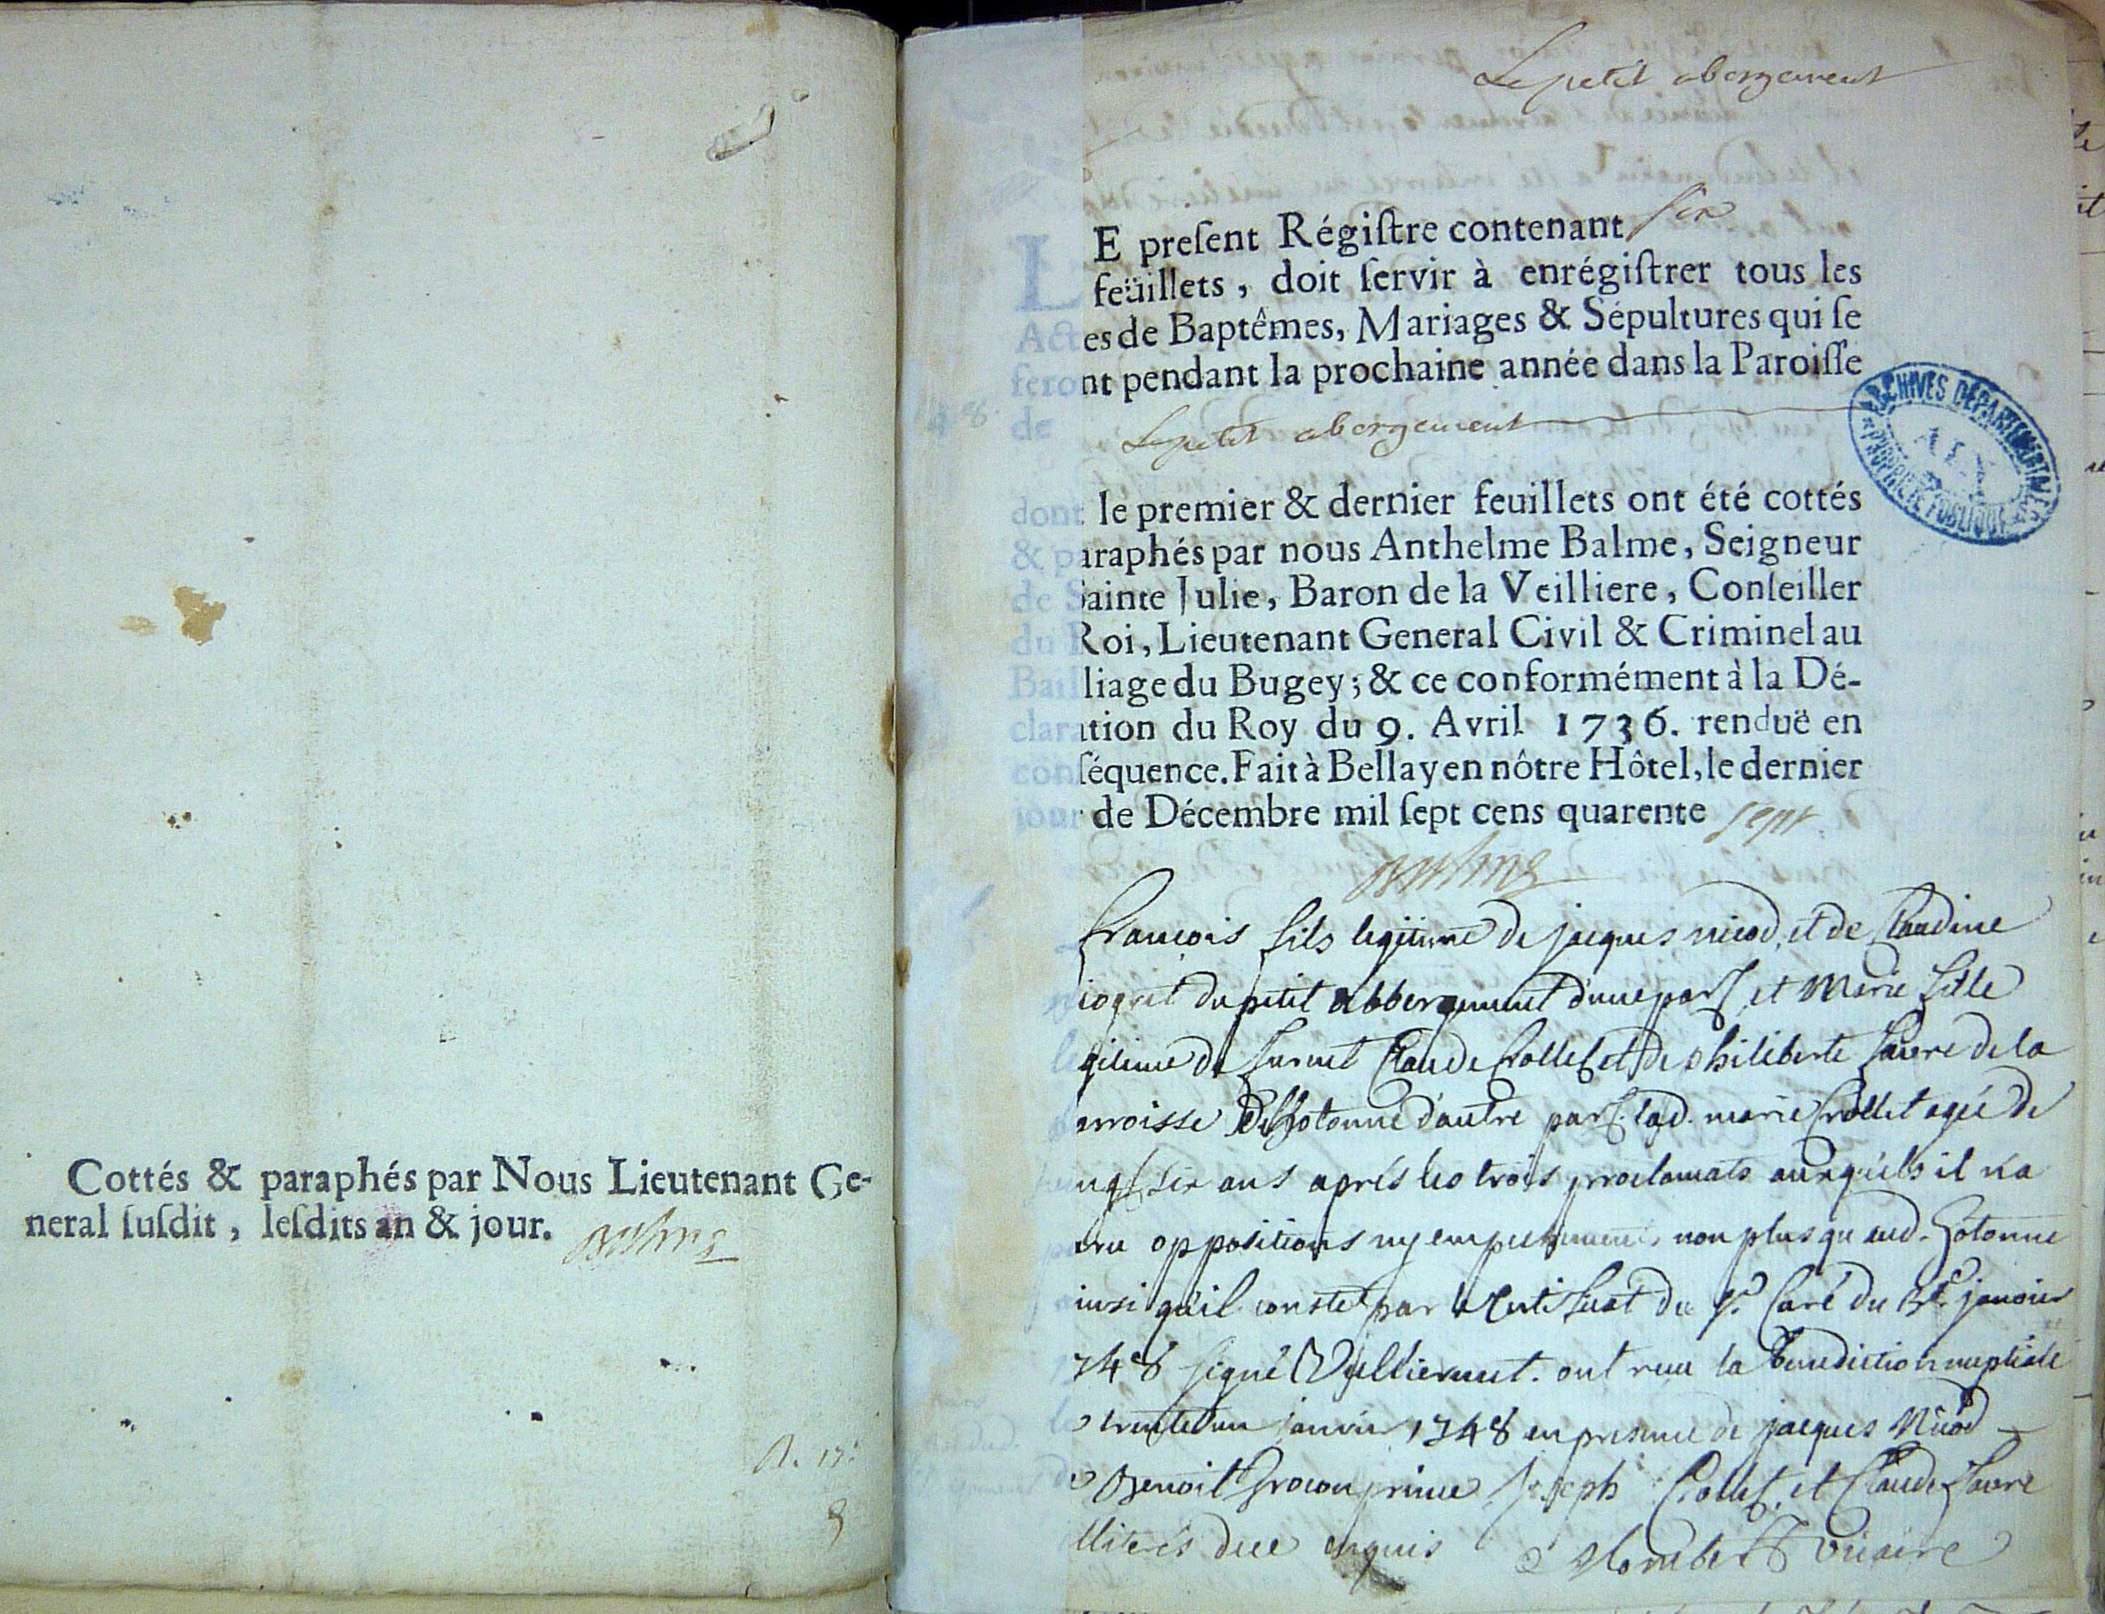 Cottés & paraphés par Nous Lieutenant Ge-
neral ſuſdit, leſdits an & jour.
Balme
Le petit abergement
LE preſent Régiſtre contenant ſix
feüillets, doit ſervir à enrégiſtrer tous les
Actes de Baptêmes, Mariages & Sépultures qui ſe
feront pendant la prochaine année dans la Paroiſſe
de Le petit abergement
dont le premier & dernier feuillets ont été cottés
& paraphés par nous Anthelme Balme, Seigneur
de Sainte Julie, Baron de la Veilliere, Conſeiller
du Roi, Lieutenant General Civil & Criminel au
Bailliage du Bugey; & ce conformément à la Dé-
claration du Roy du 9. Avril 1736. renduë en
conſéquence. Fait à Bellay en nôtre Hôtel, le dernier
jour de Décembre mil ſept cens quarente sept.
Balme
ARCHIVES DÉPARTEMENTALES
AIN
PROPRIÉTÉ PUBLIQUE
françois fils legitime de jacques nicod, et de Claudine
du petit abbergement d'une part, et Marie fille
gitime de furent Claude Crollet et de philiberte favre de la
arroisse de hotonne d'autre part, lad. marie Crollet agée de
ngt six ans aprés les trois proclamats auxquels il n'a
aru oppositions ny empechements, non plus qu'aud. hotonne
insi qu'il conste par le certificat du Sr. Curé du janvier
748 signé Vulliermet. ont reçu la benediction nuptiale
trente un janvier 1748 en presence de jacques Nicod
Benoit joseph Crollet, et Claude favre
lliterés de ce enquis vicaire